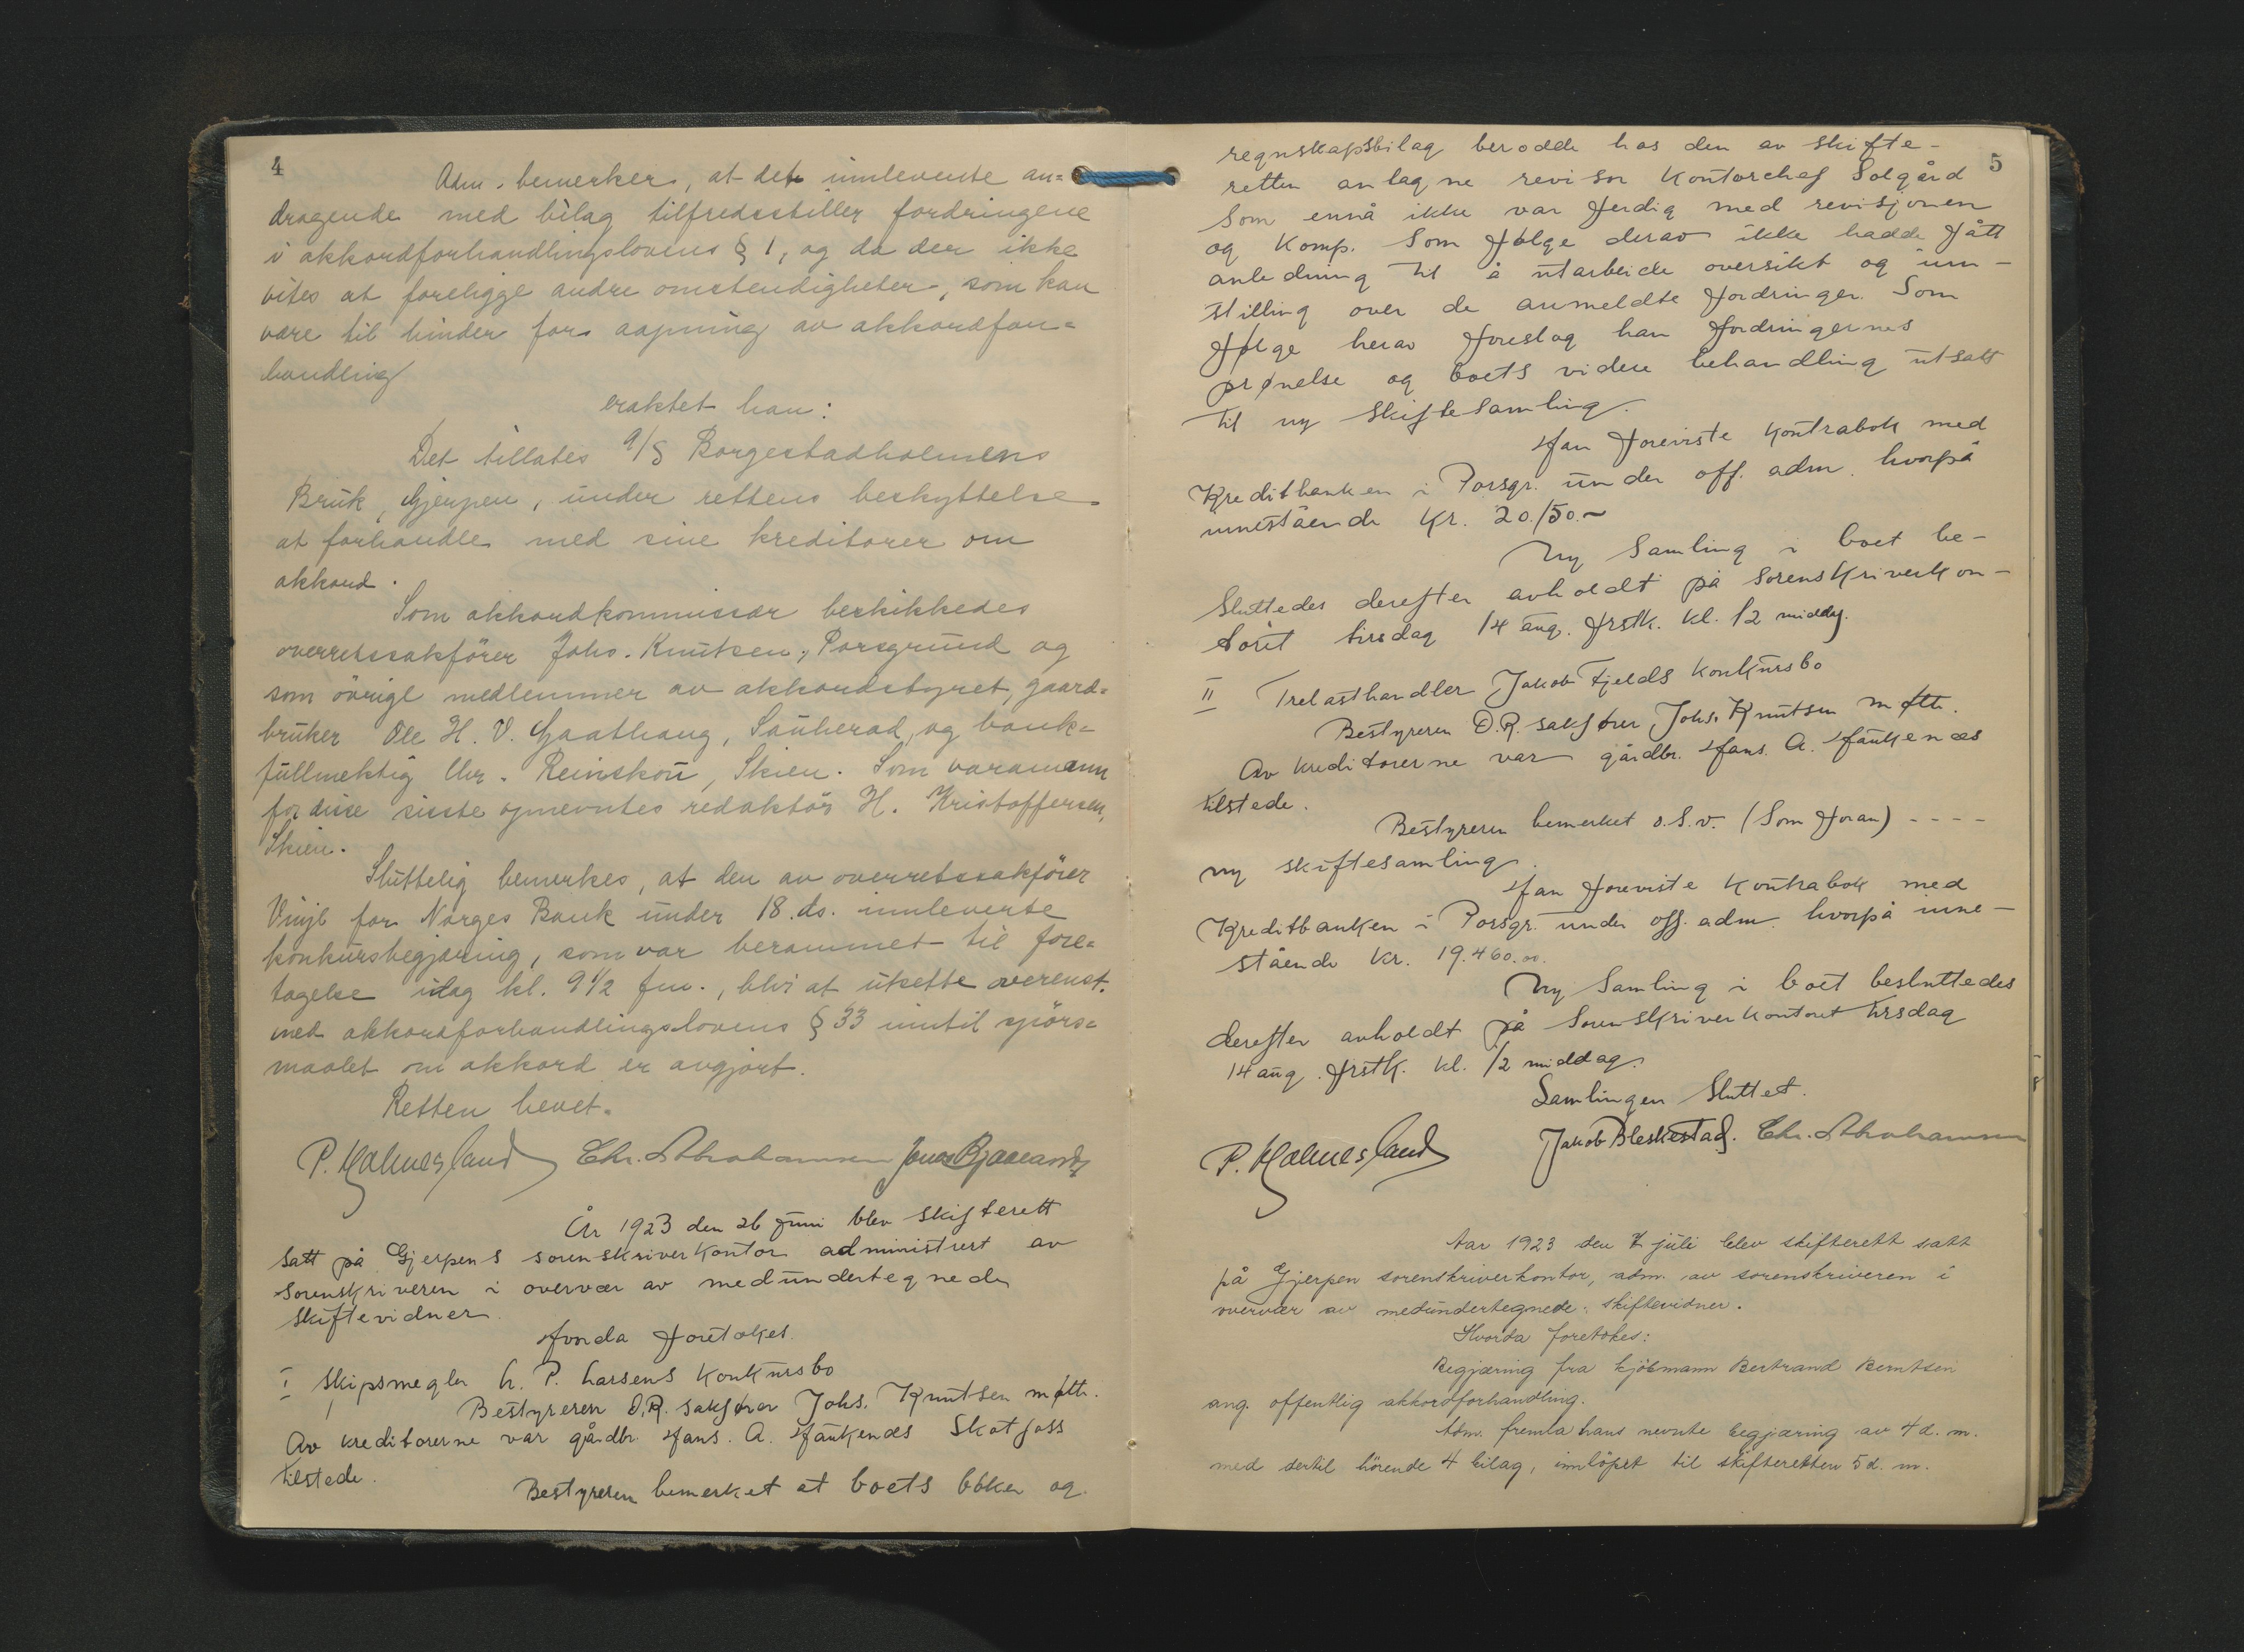 4
Adm. bemerker, at det innleverte an=
dragende med bilag tilfredsstiller fordringene
i akkordforhandlingslovens § 1, og da der ikke
vites at foreligge andre omstendigheter, som kan
være til hinder for aapning av akkordfor=
handling
eraktet han:
Det tillates A/S Borgestadholmens
Bruk, Gjerpen, under rettens beskyttelse
at forhandle med sine kreditorer om
akkord.
Som akkordkommissær beskikkedes
overretssakfører Johs. Knutsen, Porsgrund og
som övrige medlemmer av akkordstyret, gaard=
bruker Ole H. V. Gaathaug, Sauherad, og bank=
fullmektig Chr. Reinskou, Skien. Som varamann
for disse sisste opnevntes redaktör H. Kristoffersen,
Skien.
Sluttelig bemerkes, at den av overretssakförer
for Norges Bank under 18. ds. innleverte
konkursbegjæring, som var berammet til fore=
tagelse idag kl. 9½ fm., blir at utsette overenst.
med akkordforhandlingslovens § 33 inntil spörs=
maalet om akkord er avgjort.
Retten hevet.
P. Holmesland Chr. Abrahamsen Jonas Bjaaland
År 1923 den 26 juni blev skifterett
satt på Gjerpens sorenskriverkontor administrert av
Sorenskriveren i overvær av medundertegnede
skiftevidner.
Hvorda foretokes.
I Skipsmegler L. P. Larsens konkursbo
Bestyreren O.R. sakfører Johs. Knutsen møtte.
Av kreditorerne var gårdbr. Hans. A. Haukenæs Skotfoss
tilstede.
Bestyreren bemerket at boets bøker og
5
regnskapsbilag berodde hos den av skifte-
retten antagne revisor Kontorchef Solgård
Som ennå ikke var ferdig med revisjonen
og komp. Som følge derav ikke hadde fått
anledning til å utarbeide oversikt og inn-
stilling over de anmeldte fordringer. Som
følge herav foreslog han fordringernes
prøvelse og boets videre behandling utsatt
til ny skiftesamling.
Han foreviste kontrabok med
Kreditbanken i Porsgr. under off. adm. hvorpå
innestående kr. 20.150.~
Ny Samling i boet be-
sluttedes derefter avholdt på Sorenskriverkon-
toret tirsdag 14 aug. frstk. kl. 12 middag.
II Trelasthandler Jakob Fjelds konkursbo
Bestyreren O.R. sakfører Johs. Knutsen møtte.
Av kreditorerne var gårdbr. Hans. A. Haukenæs
tilstede.
Bestyreren bemerket o.s.v. (Som foran) - - - -
ny skiftesamling.
Han foreviste kontrabok med
Kreditbanken i Porsgr. under off. adm. hvorpå inne-
stående kr. 19.460.00.
Ny Samling i boet besluttedes
derefter avholdt på Sorenskriverkontoret tirsdag
14 aug. frstk. kl. 12 middag.
Samlingen Sluttet.
P. Holmesland Jakob Bleskestad. Chr. Abrahamsen
Aar 1923 den 7 juli blev skifterett satt
på Gjerpen sorenskriverkontor, adm. av sorenskriveren i
overvær av medundertegnede skiftevidner.
Hvorda foretokes:
Begjæring fra kjöbmann Bertrand Berntsen
ang. offentlig akkordforhandling.
Adm. fremla hans nevnte begjæring av 4 d. m.
med dertil hörende 4 bilag, innlöpet til skifteretten 5 d. m.